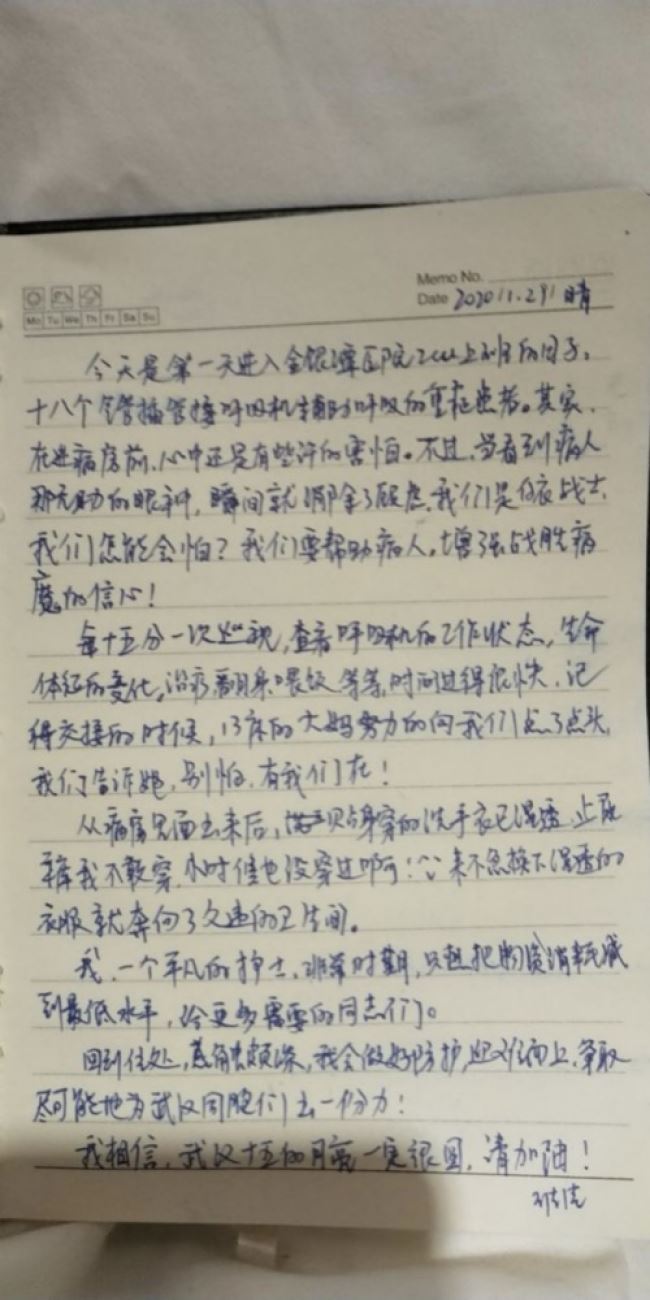 Memo No.
Mo Tu We Th Fr Sa Su
Date 2020/1.29/ 晴
今天是第一天进入金银潭医院ICU上班的日子，
十八个管插管接呼吸机辅助呼吸的重症患者。其实，
在进病房前，心中还是有些许的害怕。不过，当看到病人
那无助的眼神，瞬间就消除了顾虑，我们是白衣战士，
我们怎能会怕？我们要帮助病人，增强战胜病
魔的信心！
每十五分一次巡视，查看呼吸机的工作状态，生命
体征的变化，治疗翻身喂饭等等，时间过得很快，记
得交接的时候，13床的大妈努力的向我们点了点头，
我们告诉她，别怕，有我们在！
从病房里面出来后，贴身穿的洗手衣已湿透，
我不敢穿，小时候也没穿过啊！来不急换下湿透的
衣服就奔向了久违的卫生间。
我，一个平凡的护士，非常时期，只想把物资消耗减
到最低水平，给更多需要的同志们。
回到住处，我会做好防护，迎难而上，争取
尽可能地为武汉同胞们出一份力！
我相信，武汉十五的月亮一定很圆，请加油！